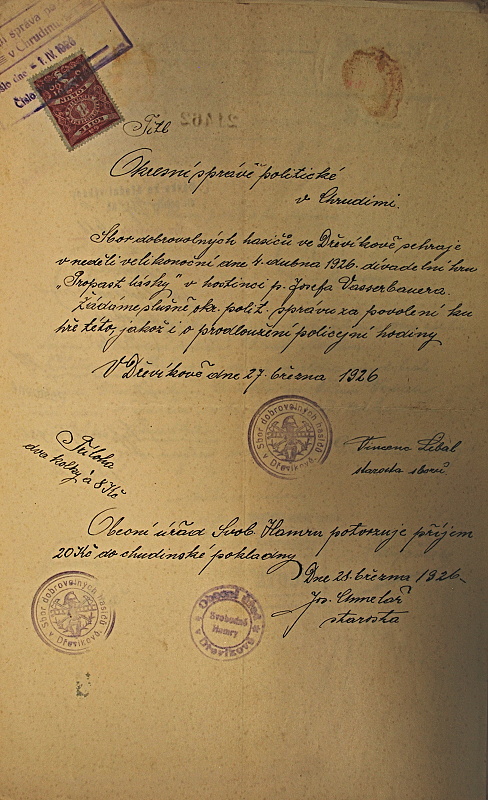 správa po
v Chrudimi
dne - 1. IV. 1926
Číslo
KOLEK
1
Titl.
Okresní správě politické
v Chrudimi.
Sbor dobrovolných hasičů ve Dřevíkově sehraje
v neděli velikonoční dne 4. dubna 1926. divadelní hru
„Propast lásky" v hostinci p. Josefa Vasserbauera.
Žádáme slušně okr. polit. správu za povolení ku
hře této, jakož i o prodloužení policejní hodiny
V Dřevíkově dne 27. března 1926
Sbor dobrovolných hasičů
v Dřevíkově.
Vincenc Lebal
starosta sboru
Příloha
dva kolky á 8 Kč
Obecní úřad Svob. Hamru potvrzuje příjem
20 Kč do chudinské pokladny
Dne 28. března 1926.
Jos. Chmelař
starosta
Sbor dobrovolných hasičů
v Dřevíkově.
Obecní úřad
Svobodné
Hamry
v Dřevíkově